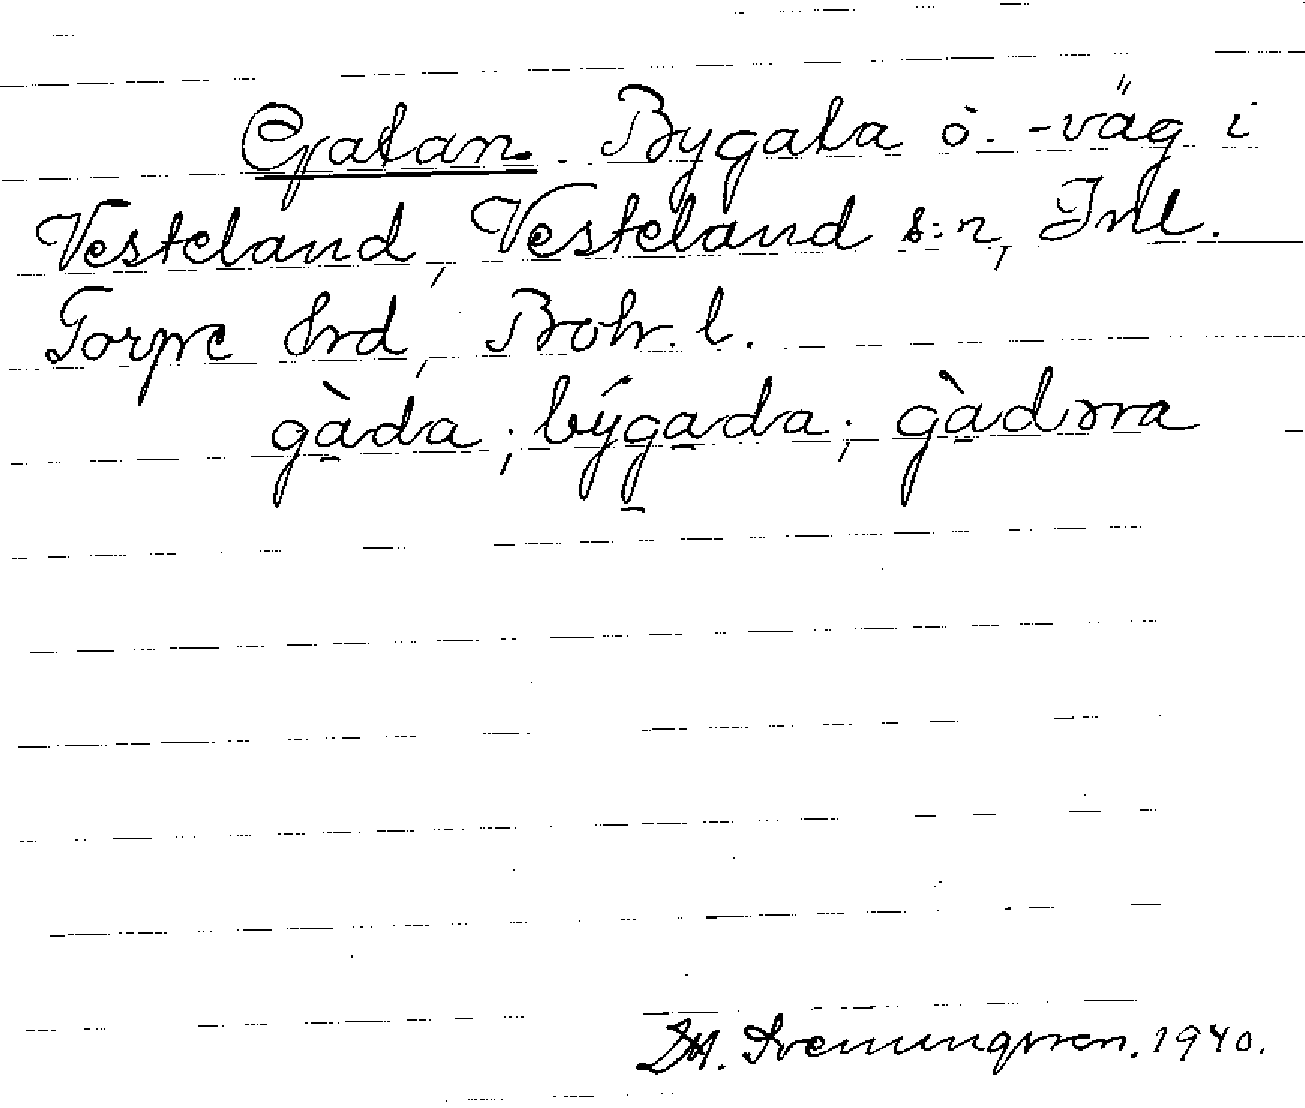 Gatan. Bygata o. -väg i
Vesteland, Vesteland s:n, Inl.
Torpe hrd, Boh. l.
gàda; býgada; gàdɔrna
Svenungsson. 1940.